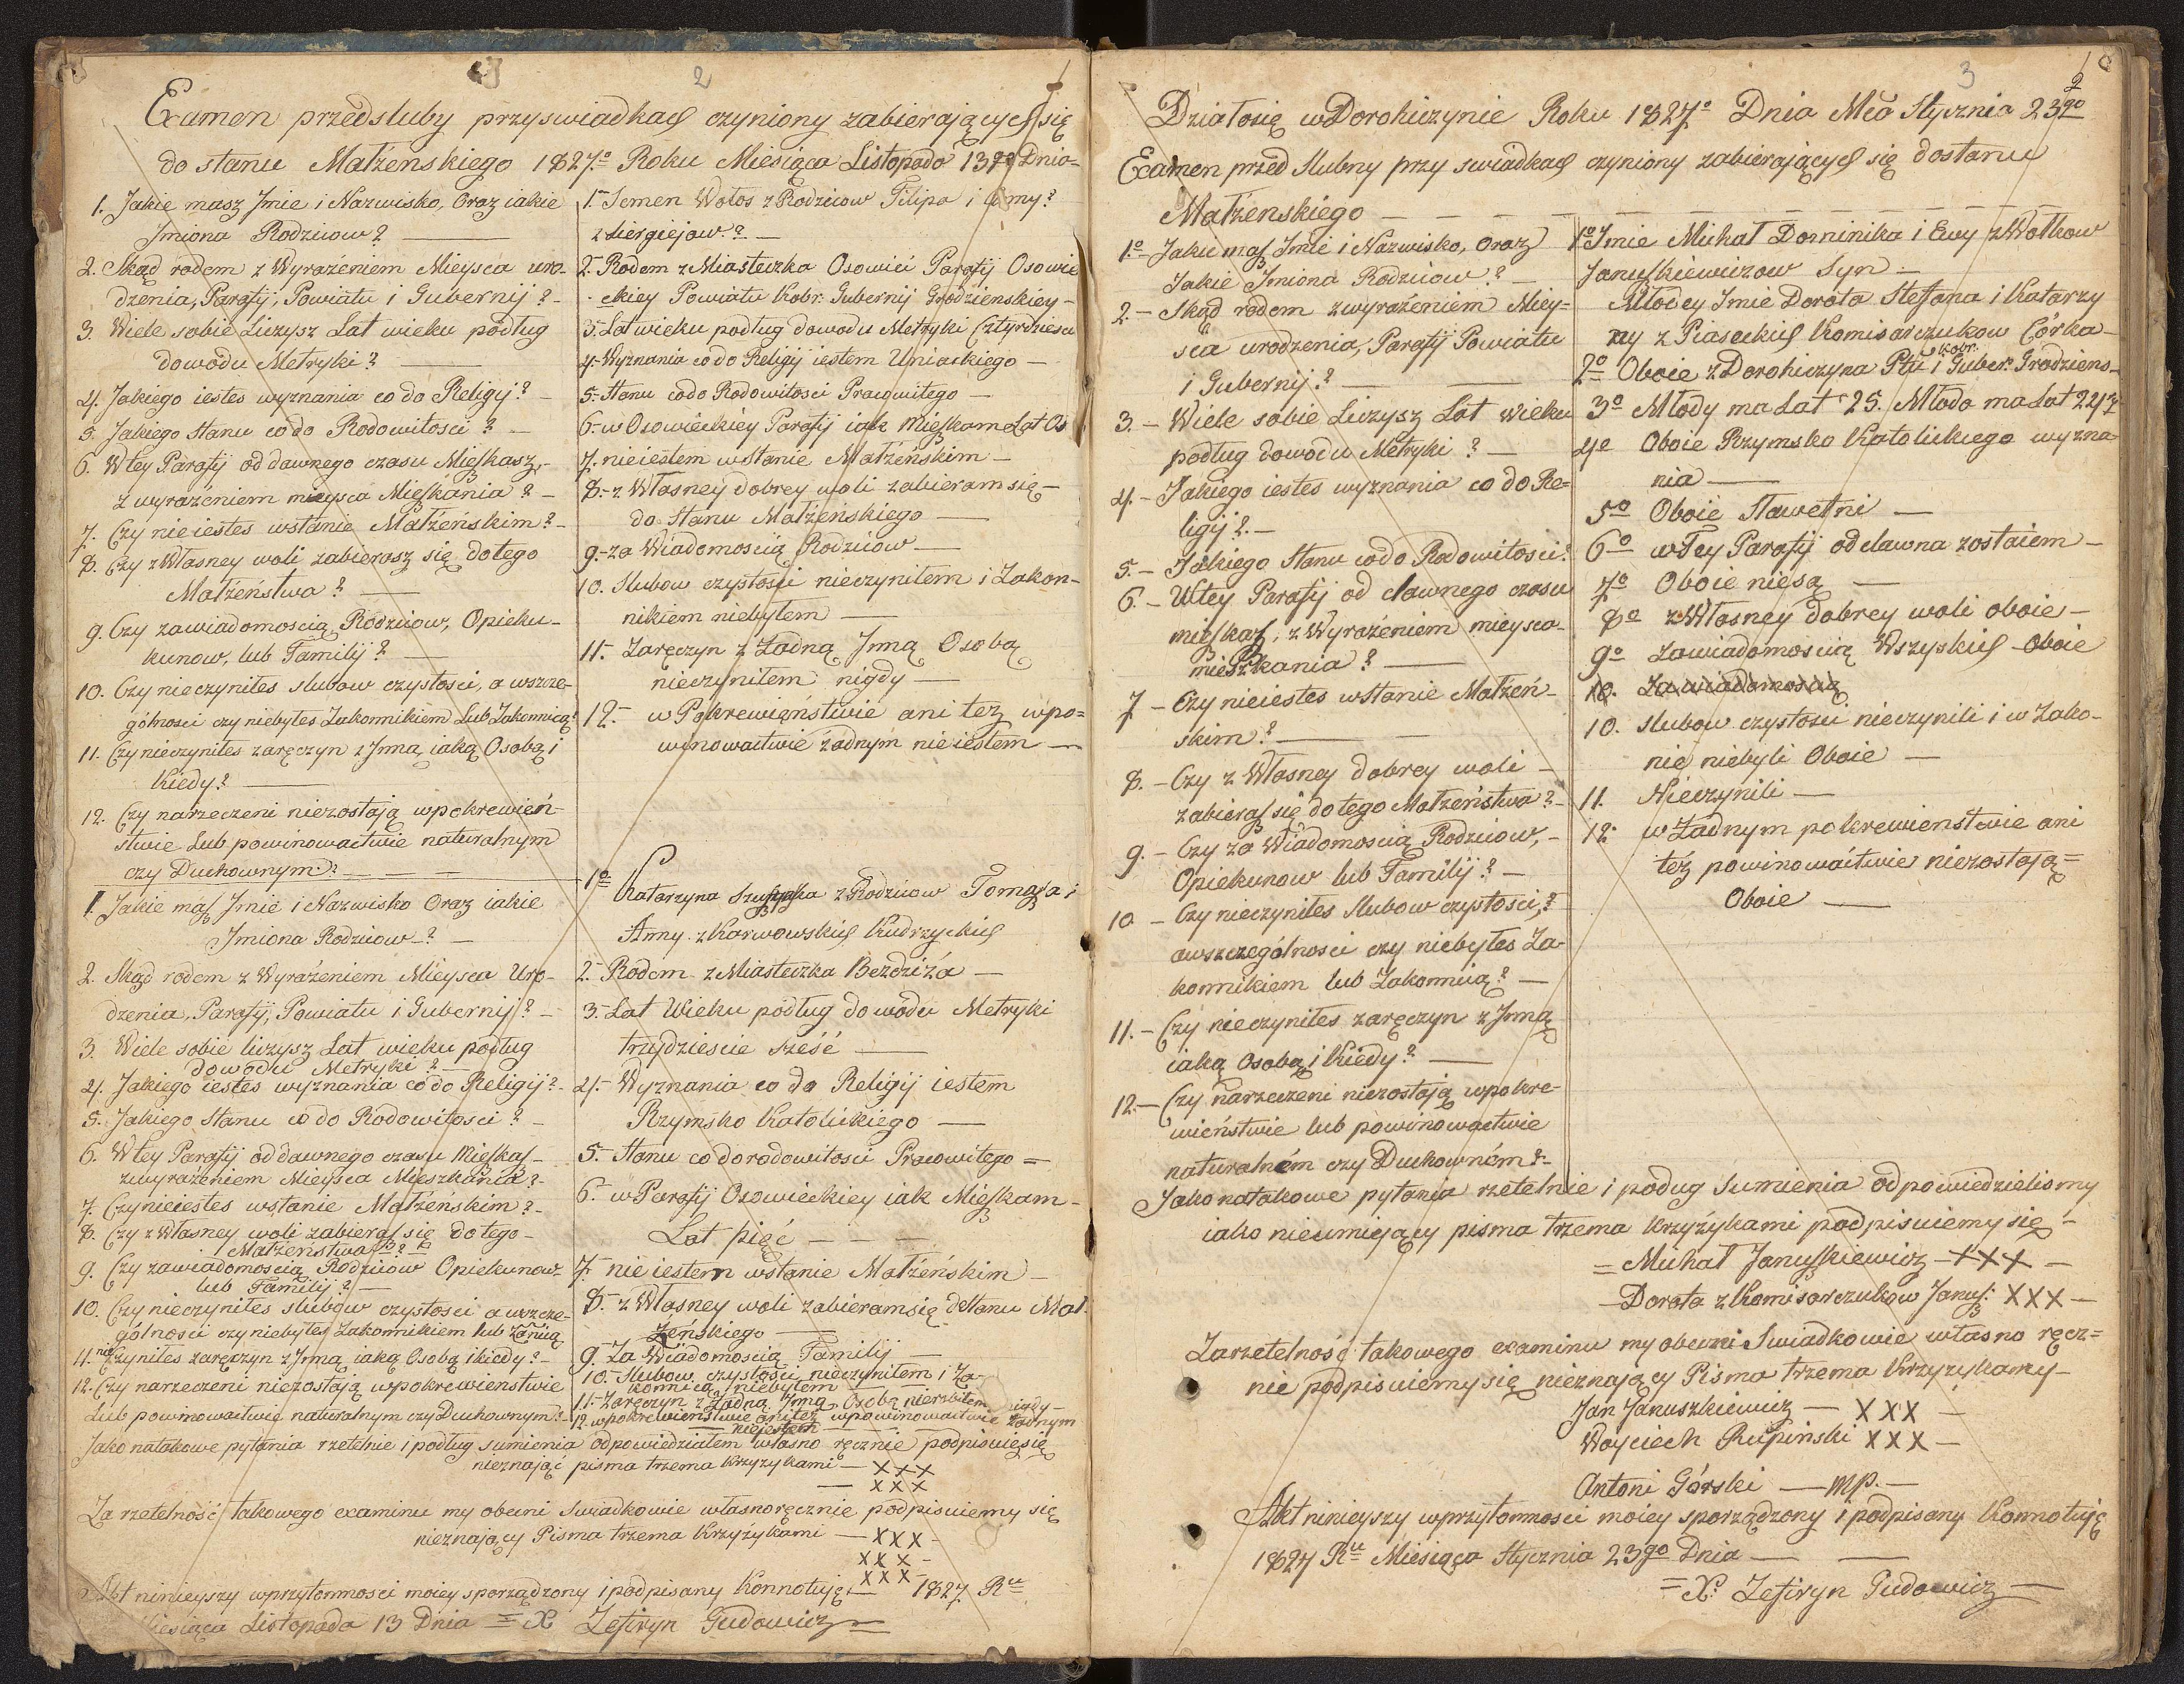 2
Examen przedsluby przyswiadkach czyniony zabierających się
do stanu Małżenskiego 1827º Roku Miesiąca Listopada 13go Dnia
1. Jakie masz Jmie i Nazwisko, Oraz iakie
Jmiona Rodzicow?
2. Skąd rodem z Wyrażeniem Mieysca uro-
dzenia, Parafij, Powiatu i Gubernij? -
3. Wiele sobie Liczysz Lat wieku podług
dowodu Metryki?
4. Jakiego iestes wyznania co do Religij? -
5. Jakiego Stanu co do Rodowitosci? -
6. W tey Parafij od dawnego czasu Mięszkasz,-
z wyrażeniem mieysca Mięszkania? -
7. Czy nieiestes wstanie Małżeńskim? -
8. Czy z Własney woli zabierasz się dotego
Małżeństwa?
9. Czy zawiadomoscią Rodzicow, Opieku-
kunow, lub Familij?
10. Czy nieczyniles slubow czystosci, a wszcze-
gólnosci czy niebyles Zakonnikiem Lub Zakonnicą?
11. Czy nieczyniles zaręczyn z Jnną iaką Osobą i
Kiedy?
12. Czy narzeczeni niezostaią wpokrewień-
stwie Lub powinowactwie naturalnym
czy Duchownym?
1. Semen Wołos z Rodzicow Filipa i Anny?
z Siergiejow? -
2. Rodem z Miasteczka Osowici Parafij Osowie
ckiey Powiatu Kobr: Gubernij Grodzienskiey -
3. Lat wieku podług dowodu Metryki Cztyrdziesci
4. Wyznania co do Religij iestem Uniackiego -
5. Stanu codo Rodowitosci Pracowitego -
6. w Osowieckiéy Parafij iak Mięszkam Lat Os
7. nieiestem wstanie Małżeńskim -
8. z Własney dobrey woli zabieram się -
do Stanu Małżeńskiego
9. za Wiadomoscią Rodzicow
10. Slubow czystosci nieczyniłem i Zakon-
nikiem niebyłem
11. Zaręczyn z Żadną Jnną Osobą
nieczyniłem nigdy
12. w Pokrewięństwie ani też wpo=
winowactwie żadnym nieiestem
1. Jakie masz Jmie i Nazwisko Oraz iakie
Jmiona Rodzicow? -
2. Skąd rodem z Wyrażeniem Mieysca Uro-
dzenia, Parafij, Powiatu i Gubernij? -
3. Wiele sobie liczysz Lat wieku podług
dowodu Metryki? -
4. Jakiego iestes wyznania co do Religij? -
5. Jakiego Stanu co do Rodowitosci? -
6. W tey Parafij od dawnego czasu Mięszkasz -
zwyrażeniem Mieysca Mięszkania? -
7. Czy nieiestes wstanie Małżeńskim? -
8. Czy z Własney woli zabierasz się do tego -
Małżenstwa?
9. Czy zawiadomoscią Rodzicow Opiekunow -
lub Familij? -
10. Czy nieczyniles slubow czystosci a wszcze-
gólnosci czy niebyles Zakonnikiem lub Zanicą
11. nieczyniles zaręczyn z Jnną iaką Osobą i kiedy? -
12. Czy narzeczeni niezostaią wpokrewienstwie
Lub powinowactwie naturalnym czy Duchownym? -
1º Katarzyna z Rodzicow Tomasza i
Anny z Karwowskich Kudrzyckich
2. Rodem z Miasteczka Bezdziża -
3. Lat Wieku podług dowodu Metryki
trzydziescie sześć
4. Wyznania co do Religij iestem
Rzymsko Katolickiego
5. Stanu co do rodowitosci Pracowitego =
6. w Parafij Osowieckiey iak Mięszkam -
Lat pięć
7. nie iestem wstanie Małżeńskim -
8. z Własney woli zabieramsię do stanu Mał
żeńskiego
9. Za Wiadomoscią Familij
10. Slubow czystosci nieczyniłem i Za-
konnicą niebyłem
11. Zaręczyn z Żadną Jnną Osobą nierobiłem nigdy -
12. wpokrewieństwie ani też wpowinowactwie żadnym
niejestem
Jako natakowe pytania rzetelnie i podług sumienia odpowiedziałem własno ręcznie podpisuię się
nieznaiąć pisma trzema Krzyzykami - X X X
- X X X
Za rzetelność takowego examinu my obecni Swiadkowie własnoręcznie podpisuiemy się
nieznaiący Pisma trzema Krzyżykami - XXX -
XXX -
XXX -
Akt ninieyszy wprzytomnosci moiey sporządzony i podpisany Konnotuję - 1827 Ru
Miesiąca Listopada 13 Dnia = X Zefiryn Gudowicz =
3
2
Działosię w Dorohiczynie Roku 1827º Dnia Mca Stycznia 23go
Examen przed Slubny przy swiadkach czyniony zabierających się dostanu
Małżenskiego
1º Jakie masz Jmie i Nazwisko, oraz
Jakie Jmiona Rodzicow? -
2. - Skąd rodem zwyrażeniem Miey=
sca urodzenia, Parafij Powiatu
i Gubernij?
3. - Wiele sobie Liczysz Lat wieku
podług dowodu Metryki? -
4. - Jakiego iestes wyznania co do Re=
ligij? -
5. - Jakiego Stanu codo Rodowitosci?
6. - Wtey Parafij od dawnego czasu
mięszkasz, z Wyrażeniem mieysca
mieszkania?
7 - Czy nieiestes wstanie Małżeń-
skim?
8. - Czy z Własney dobrey woli -
zabierasz się do tego Małżeństwa? -
9. - Czy za Wiadomoscią Rodzicow, -
Opiekunow lub Familij? -
10 - Czy nieczyniles Slubow czystosci,?
awszczególnosci czy niebyles Za-
konnikiem lub Zakonnicą? -
11. - Czy nieczyniles zaręczyn z Jnną
iaką Osobą i Kiedy?
12. - Czy narzeczeni niezostaią wpokre-
wieństwie lub powinowactwie
naturalném czy Duchowném? -
1º Jmie Michał Dominika i Ewy z Wołkow
Januszkiewiczow Syn -
Młodey Jmie Dorota Stefana i Katarzy
ny z Piaseckich Komisarczukow Córka -
Kobr.
2º Oboie z Dorohiczyna Ptu i Guber: Grodziens-
3º Młody ma Lat 25. Młoda ma Lat 24
4º Oboie Rzymsko Katolickiego wyzna-
nia
5º Oboie Sławetni
6º wTey Parafij od dawna zostaiem -
7º Oboie niesą
8º z Własney dobrey woli oboie -
9º Zawiadomoscią Wszyskich Oboie
10. Zawiadomoscią
10. slubow czystosci nieczynili i w Zako-
nie niebyli Oboie
11. Nieczynili
12. w Żadnym pokrewienstwie ani
też powinowactwie niezostaią =
Oboie
Jako natakowe pytania rzetelnie i podug Sumienia odpowiedzielismy
iako nieumieiący pisma trzema krzyżykami podpisuiemy się -
= Michał Januszkiewicz - XXX -
- Dorota z Komisarczukow Janusz: XXX -
Zarzetelność takowego examinu my obecni Swiadkowie własno ręcz=
nie podpisuiemy się nieznaiący Pisma trzema Krzyzykamy -
Jan Januszkiewicz - XXX -
Woyciech Rupiński XXX -
Antoni Górski - mp. -
Akt ninieyszy wprzytomnosci moiéy sporządzony i podpisany Konnotuję
1827 Ru Miesiąca Stycznia 23go Dnia
= X. Zefiryn Gudowicz -